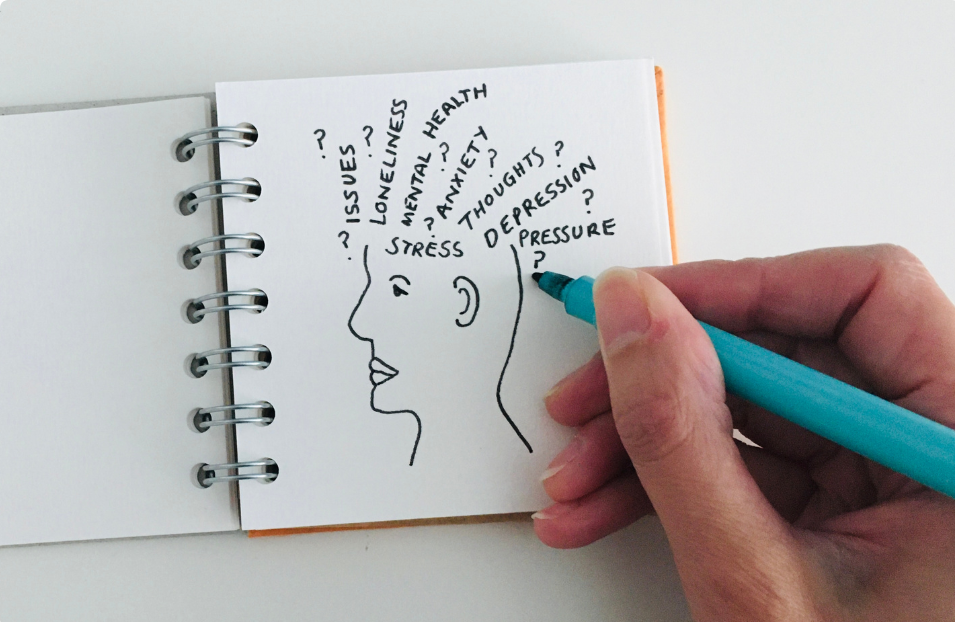 ?
ISSUES
?
?
LONELINESS
MENTAL HEALTH
?
?
ANXIETY
?
THOUGHTS ?
DEPRESSION
?
PRESSURE
?
STRESS